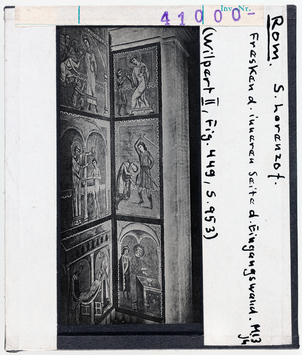 Inv. Nr.
41000-
Rom. S. Lorenzo f.
Fresken d. inneren Seite d. Eingangswand.
(Wilpert II, Fig. 449, S. 953)